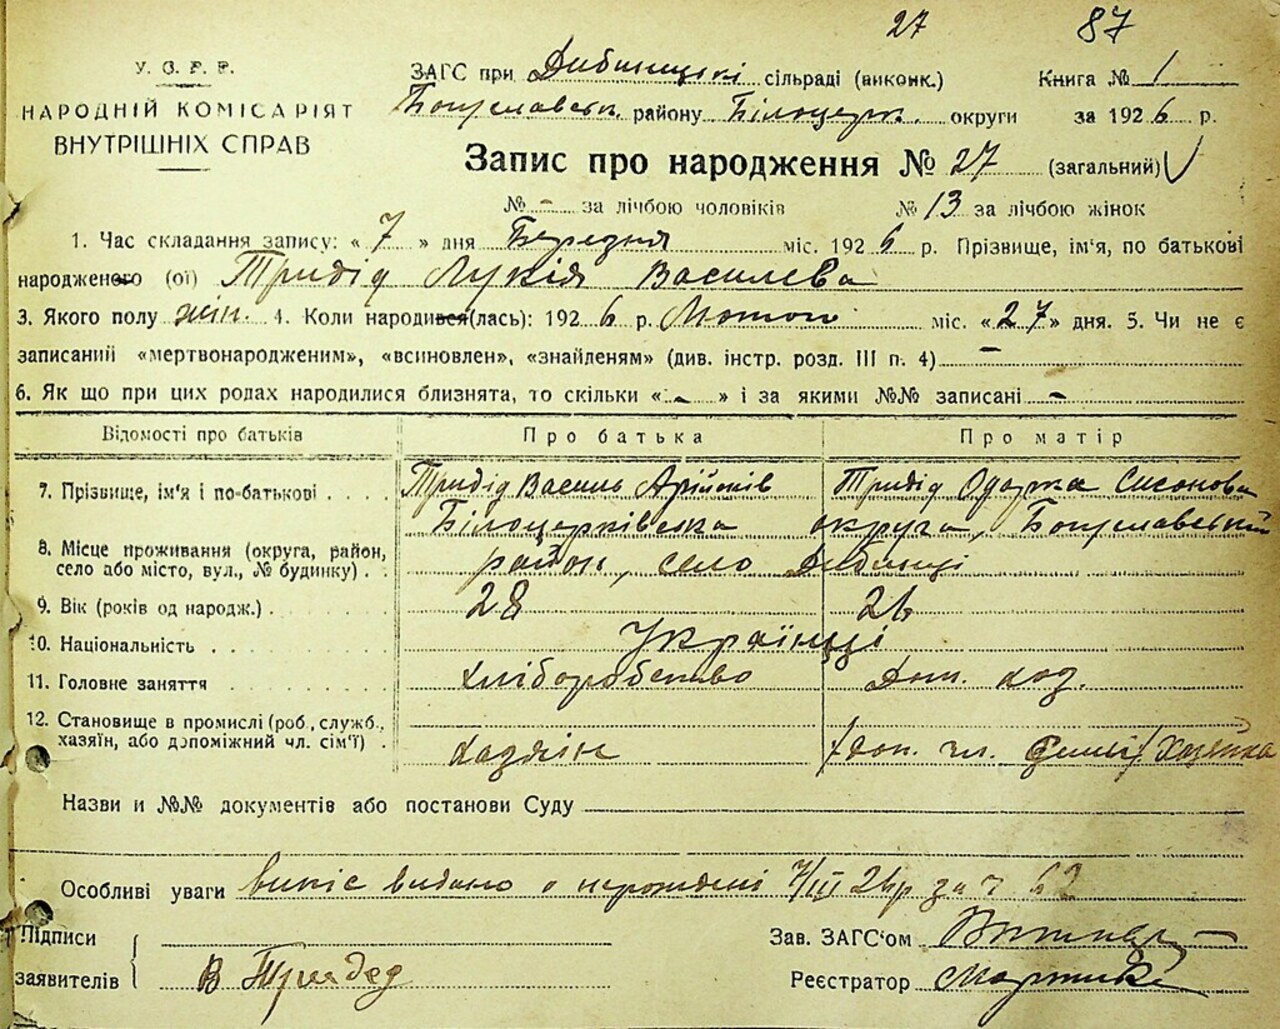 27 87
У. С. Р. Р.
НАРОДНІЙ КОМІСАРІЯТ
ВНУТРІШНІХ СПРАВ
ЗАГС при Дибинецькі сільраді (виконк.) Книга № 1
Богуславськ. району Білоцерк. округи за 1926 р.
Запис про народження № 27 (загальний)
№ - за лічбою чоловіків № 13 за лічбою жінок
1. Час складання запису: «7» дня Березня міс. 1926 р. Прізвище, ім'я, по батькові
народженого (ої) Тридід Лукія Василева
3. Якого полу жін. 4. Коли народився(лась): 1926 р. Лютого міс. «27» дня. 5. Чи не є
записаний «мертвонародженим», «всиновлен», «знайденям» (див. інстр. розд. III п. 4) -
6. Як що при цих родах народилися близнята, то скільки « - » і за якими №№ записані -
Відомості про батьків Про батька Про матір
7. Прізвище, ім'я і по-батькові . . . . Тридід Василь Тридід Одарка Сисонова
Білоцерківська округа, Богуславський
8. Місце проживання (округа, район, район, село Дибинці
село або місто, вул., № будинку) . .
9. Вік (років од народж.) . . . . . 28 26
10. Національність . . . . . . . Українці
11. Головне заняття . . . . . . . хліборобство Дом. ход.
12. Становище в промислі (роб., служб.,
хазяїн, або допоміжний чл. сім'ї) . хазяін /доп. чл. семії/ Хазяйка
Назви и №№ документів або постанови Суду
Особливі уваги випис видано о нарождені 7/III 26р за № 62
Підписи Зав. ЗАГС'ом
заявителів В Тридед Реєстратор